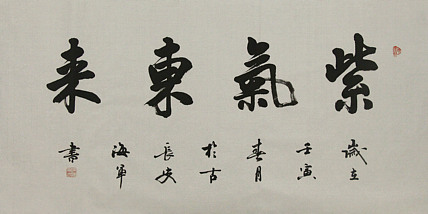 紫氣東来
歲在壬寅春月於古長安海軍書